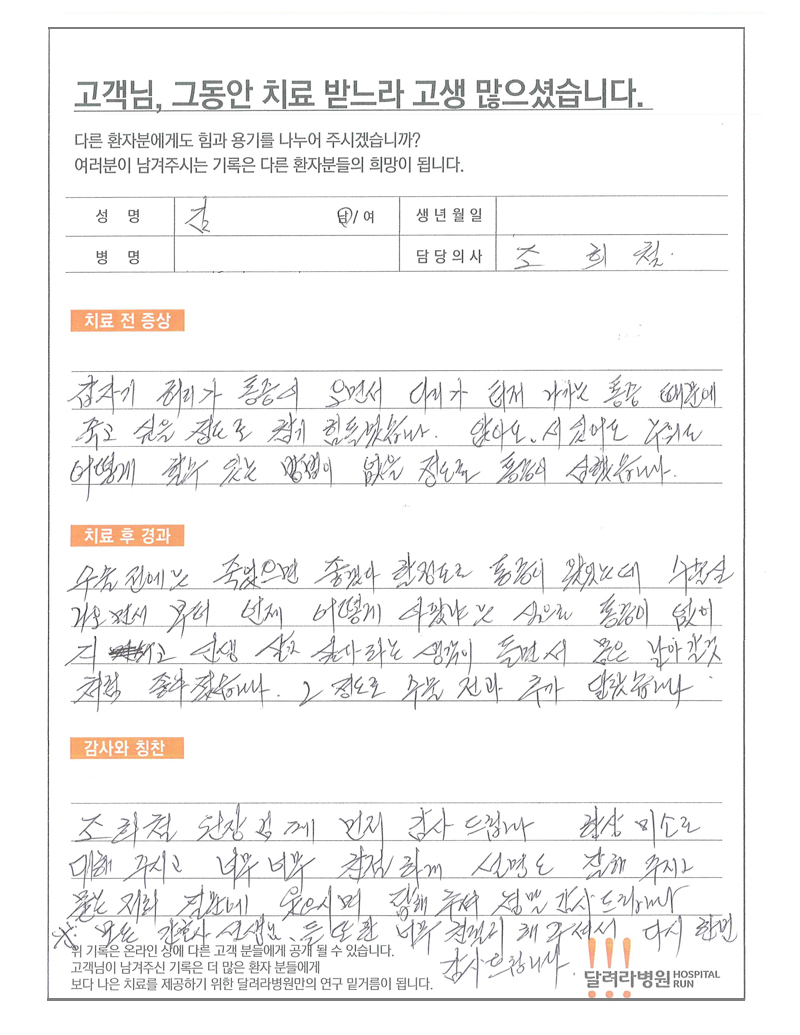 고객님, 그동안 치료 받느라 고생 많으셨습니다.
다른 환자분에게도 힘과 용기를 나누어 주시겠습니까?
여러분이 남겨주시는 기록은 다른 환자분들의 희망이 됩니다.
성 명 김 남/여 생년월일
병 명 담당의사 조 희 철.
치료 전 증상
갑자기 허리가 통증이 오면서 다리가 터져 나가는 통증 때문에
죽고 싶을 정도로 참기 힘들었습니다. 앉아도, 서 있어도 누워도
어떻게 할 수 있는 방법이 없을 정도로 통증이 심했습니다.
치료 후 경과
수술 전에는 죽었으면 좋겠다 할 정도로 통증이 왔었는데 수술실
나오면서 부터 언제 어떻게 아팠냐는 식으로 통증이 없어
지고 인생 살고 싶다라는 생각이 들면서 몸은 날아갈것
처럼 좋아졌습니다. 그 정도로 수술 전과 후가 달랐습니다
감사와 칭찬
조희철 원장님께 먼저 감사 드립니다 항상 미소로
대해 주시고 너무 너무 친절하게 설명도 잘해 주시고
묻는 저의 질문에 웃으시며 답해 주셔 정말 감사드립니다
※ 모든 간호사 선생님들 또한 너무 친절히 해 주셔서 다시 한번
감사드립니다.
위 기록은 온라인 상에 다른 고객 분들에게 공개 될 수 있습니다.
고객님이 남겨주신 기록은 더 많은 환자 분들에게
보다 나은 치료를 제공하기 위한 달려라병원만의 연구 밑거름이 됩니다.
달려라병원 HOSPITAL RUN